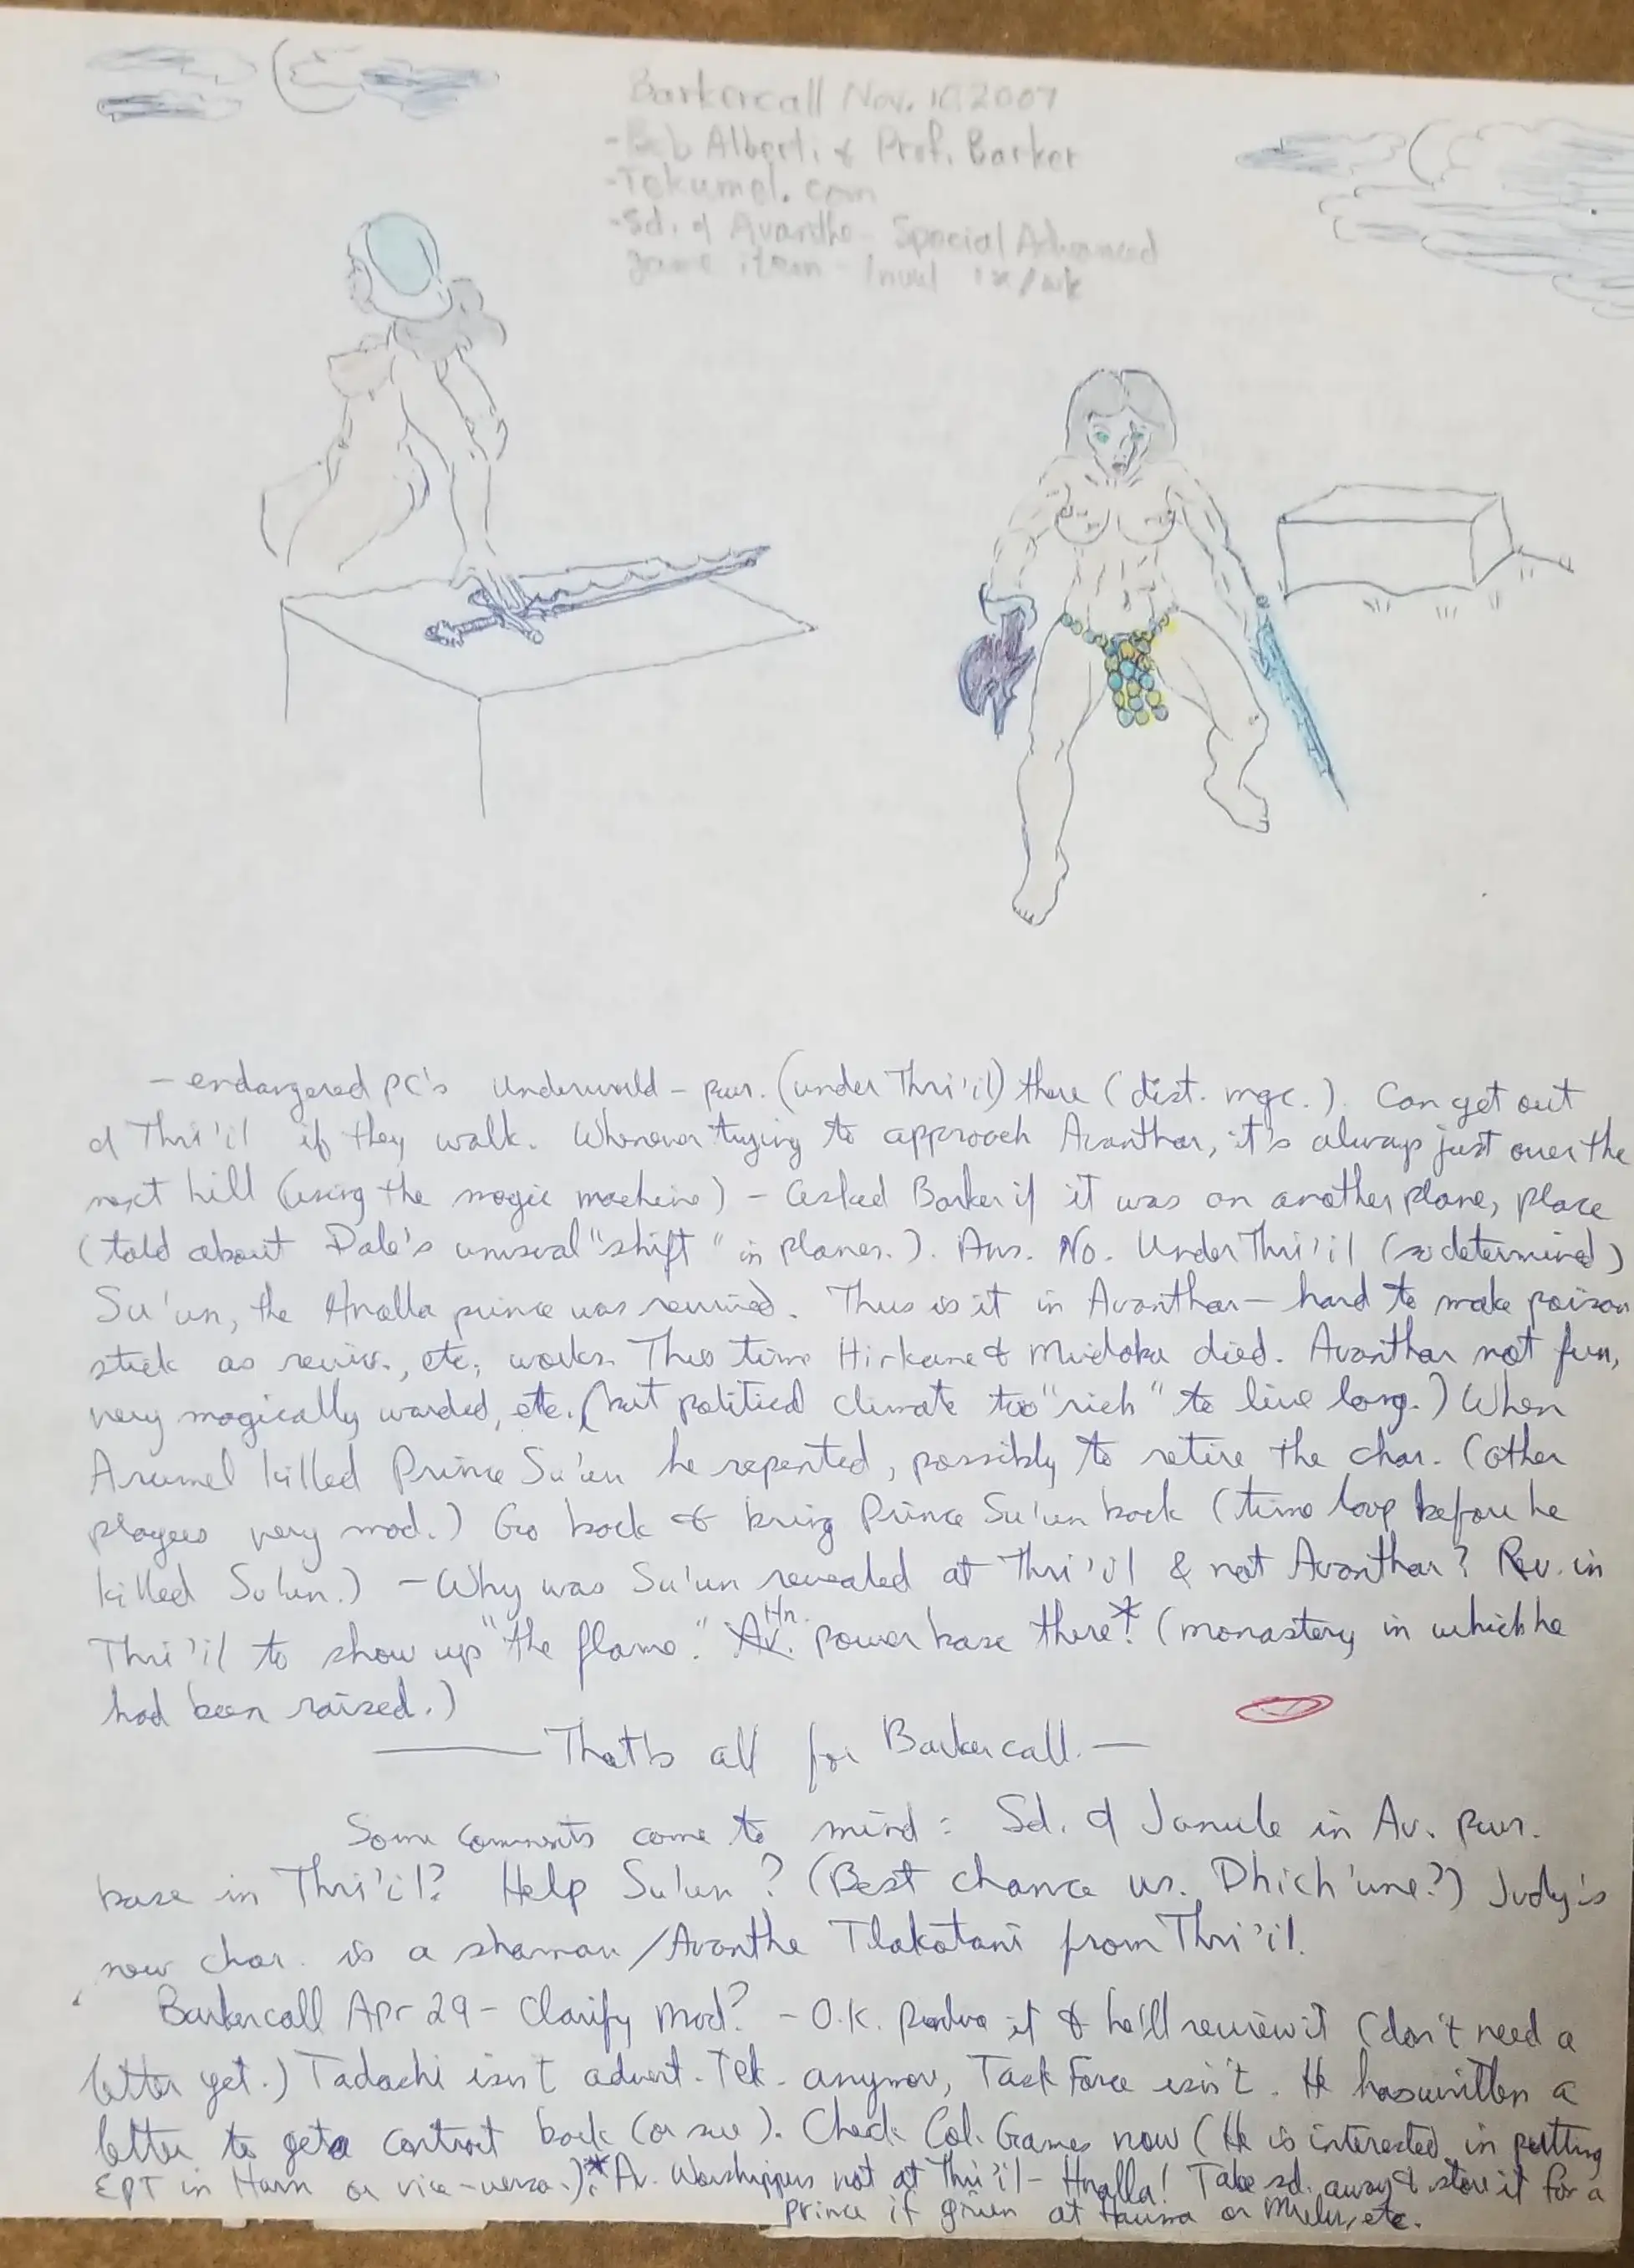 Barkercall Nov. 10 2007
- Bob Alberti & Prof. Barker
- Tekumel.com
- Sd. of Avanthe - Special Advanced
game item - 1x/wk
- endangered PC's Underworld - pwr. (under Thri'il) there (dist. mgc.). Can get out
of Thri'il if they walk. Whenever trying to approach Avanthar, it's always just over the
next hill (using the magic machine) - asked Barker if it was on another plane, place
(told about Dale's unusual "shift" in planes.). Ans. No. Under Thri'il (so determined)
Su'un, the Hnalla prince was revived. Thus is it in Avanthar - hard to make poison
stick as reviv., etc, works. This time Hirkane & Mridobu died. Avanthar not fun,
very magically warded, etc. (but political climate too "rich" to live long.) When
Arumel killed Prince Su'un he repented, possibly to retire the char. (other
players very mad.) Go back & bring Prince Su'un back (time loop before he
killed Su'un.) - Why was Su'un revealed at Thri'il & not Avanthar? Rev. in
Thri'il to show up "the flame." Hn. power base there*! (monastery in which he
had been raised.)
That's all for Barkercall. -
Some comments come to mind: Sd. of Janule in Av. pwr.
base in Thri'il? Help Su'un? (Best chance vs. Dhich'une?) Judy's
new char. is a shaman/Avanthe Tlakotani from Thri'il.
Barkercall Apr 29 - Clarify Mod? - O.K. produce it & he'll review it (don't need a
letter yet.) Tadashi isn't advert. Tek. anymore, Task Force isn't. He has written a
letter to get a contract back (or sue). Check Col. Games now (He is interested in putting
EPT in Harn or vice-versa.). *Av. Worshippers not at Thri'il - Hnalla! Take sd. away & store it for a
Prince if given at Hauma or Mrelu, etc.